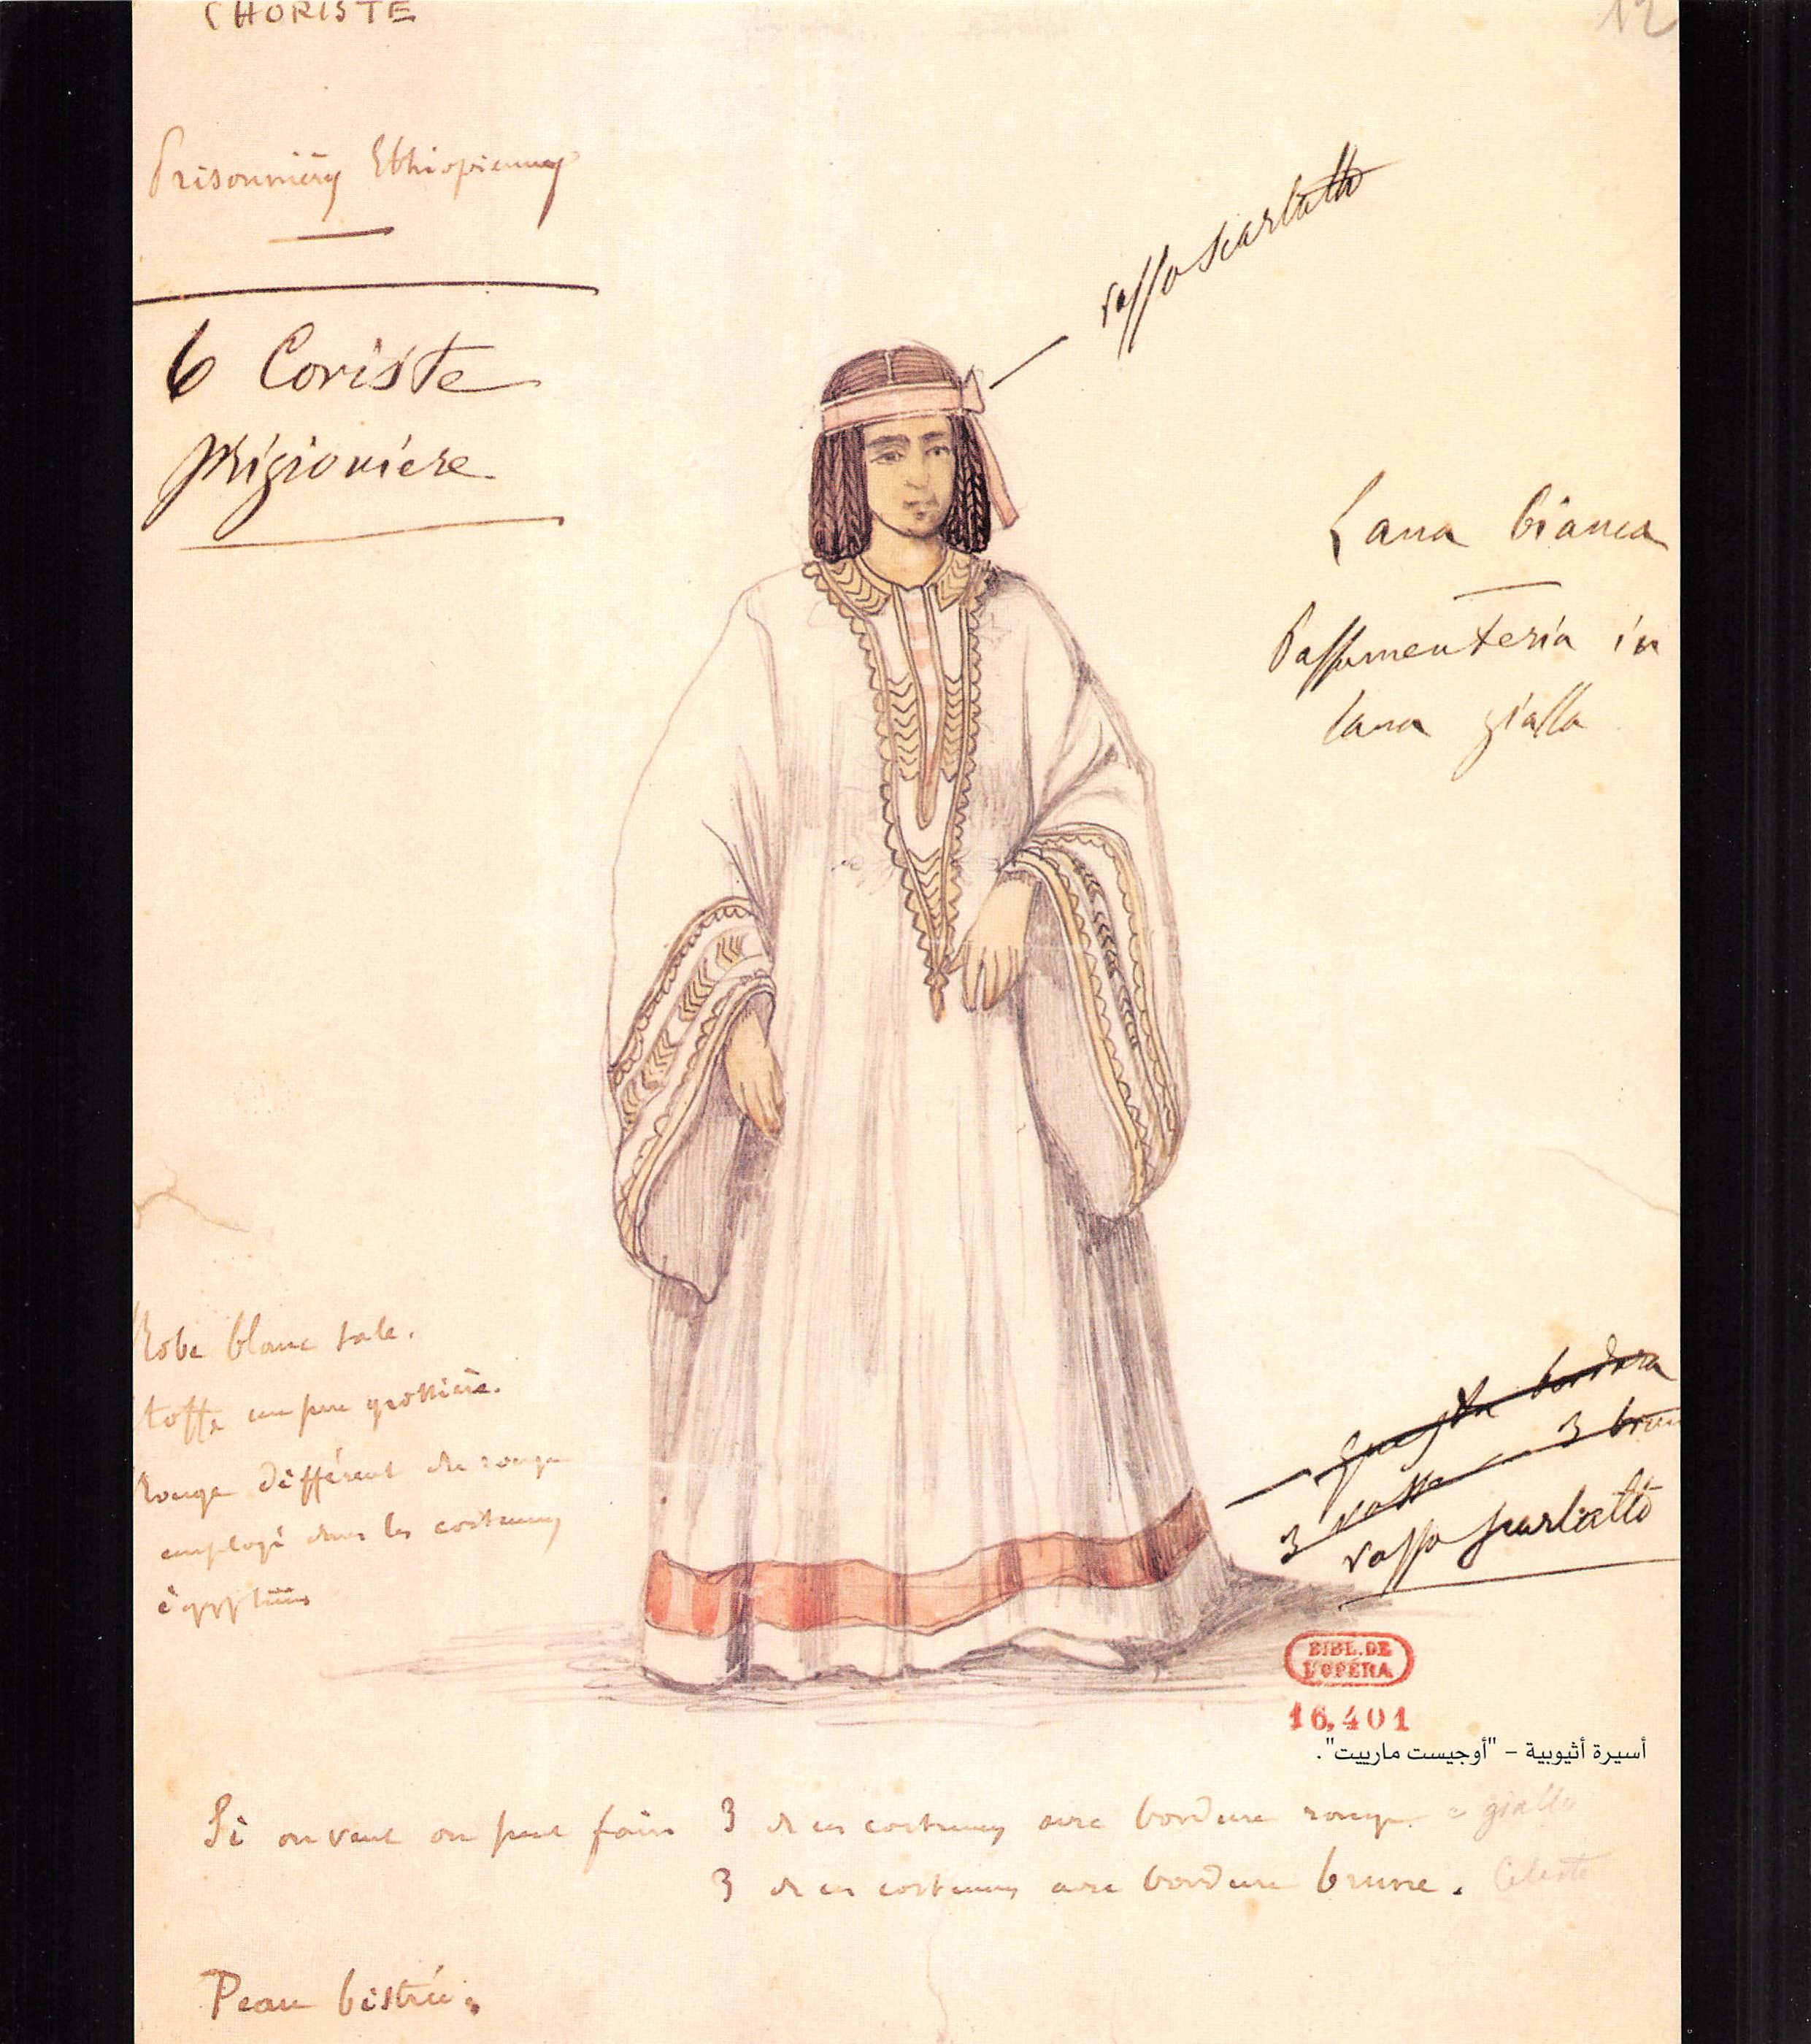 CHORISTE
12
Prisonnières Ethiopiennes
6 Coriste
prigioniere
rosso scarlatto
Lana bianca
Passamenteria in
lana gialla
Robe blanc sale.
Etoffe un peu grossière.
Rouge différent du rouge
employé dans les costumes
égyptiens
questa bordura
3 rosse 3 brune
rosso scarlatto
BIBL. DE
L'OPÉRA
16,401
أسيرة أثيوبية – "أوجيست مارييت".
Si on veut on peut faire 3 de ces costumes avec bordure rouge. e gialla
3 de ces costumes avec bordure brune. Celeste
Peau bistrée.